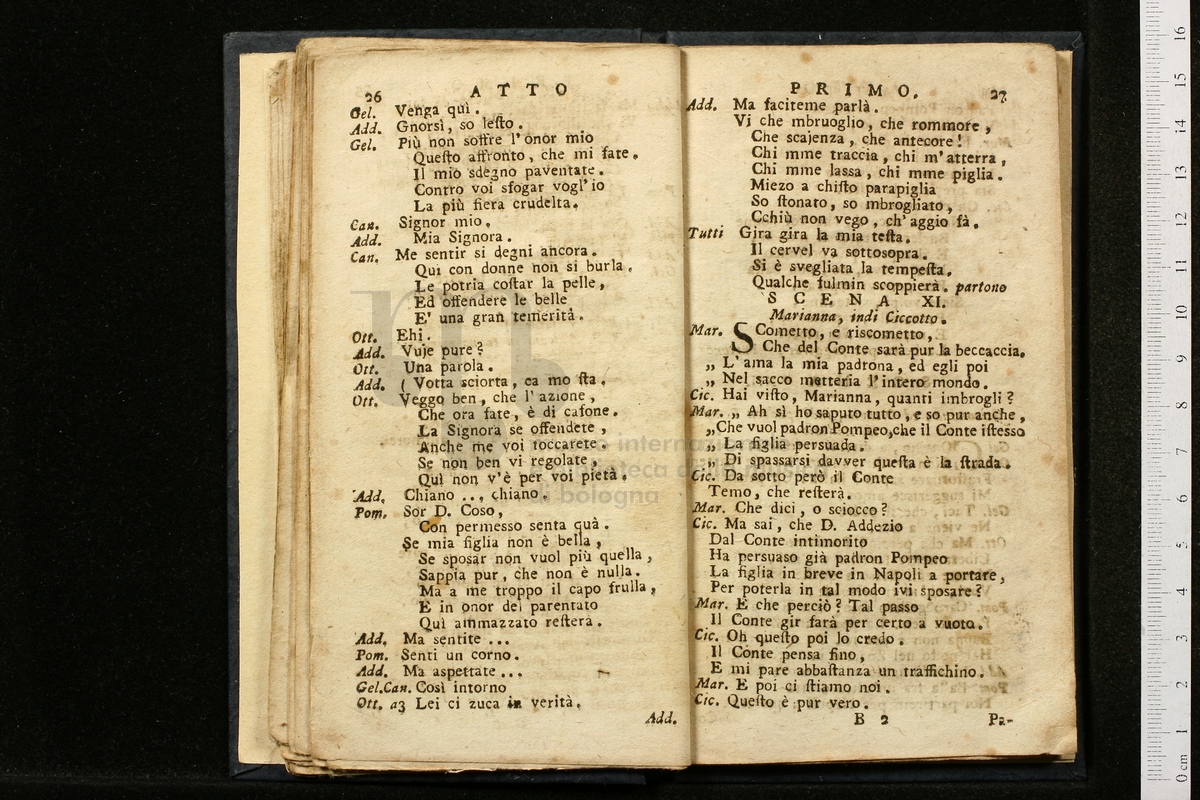 26 ATTO
Gel. Venga quì.
Add. Gnorsì, so leſto.
Gel. Più non soffre l'onor mio
Queſto affronto, che mi fate.
Il mio sdegno paventate.
Contro voi sfogar vogl'io
La più fiera crudelta.
Can. Signor mio.
Add. Mia Signora.
Can. Me sentir si degni ancora.
Qui con donne non si burla.
Le potria coſtar la pelle,
Ed offendere le belle
E' una gran temerità.
Ott. Ehi.
Add. Vuje pure?
Ott. Una parola.
Add. ( Votta sciorta, ca mo ſta.
Ott. Veggo ben, che l'azione,
Che ora fate, è di cafone.
La Signora se offendete,
Anche me voi toccarete.
Se non ben vi regolate,
Quì non v'è per voi pietà.
Add. Chiano ... chiano.
Pom. Sor D. Coso,
Con permesso senta quà.
Se mia figlia non è bella,
Se sposar non vuol più quella,
Sappia pur, che non è nulla.
Ma a me troppo il capo frulla,
E in onor del parentato
Quì ammazzato reſterà.
Add. Ma sentite ...
Pom. Senti un corno.
Add. Ma aspettate ...
Gel.Can. Così intorno
Ott. a3 Lei ci zuca in verità.
Add.
PRIMO. 27
Add. Ma faciteme parlà.
Vi che mbruoglio, che rommore,
Che scajenza, che antecore!
Chi mme traccia, chi m'atterra,
Chi mme lassa, chi mme piglia.
Miezo a chiſto parapiglia
So ſtonato, so mbrogliato,
Cchiù non vego, ch'aggio fà.
Tutti Gira gira la mia teſta.
Il cervel va sottosopra.
Si è svegliata la tempeſta.
Qualche fulmin scoppierà. partono
SCENA XI.
Marianna, indi Ciccotto.
Mar. SCometto, e riscometto,
Che del Conte sarà pur la beccaccia.
„ L'ama la mia padrona, ed egli poi
„ Nel sacco metteria l'intero mondo.
Cic. Hai viſto, Marianna, quanti imbrogli?
Mar. „ Ah sì ho saputo tutto, e so pur anche,
„ Che vuol padron Pompeo, che il Conte iſtesso
„ La figlia persuada.
„ Di spassarsi davver queſta è la ſtrada.
Cic. Da sotto però il Conte
Temo, che reſterà.
Mar. Che dici, o sciocco?
Cic. Ma sai, che D. Addezio
Dal Conte intimorito
Ha persuaso già padron Pompeo
La figlia in breve in Napoli a portare,
Per poterla in tal modo ivi sposare?
Mar. E che perciò? Tal passo
Il Conte gir farà per certo a vuoto.
Cic. Oh queſto poi lo credo.
Il Conte pensa fino,
E mi pare abbaſtanza un traffichino.
Mar. E poi ci ſtiamo noi.
Cic. Queſto è pur vero.
B 2 Pa-